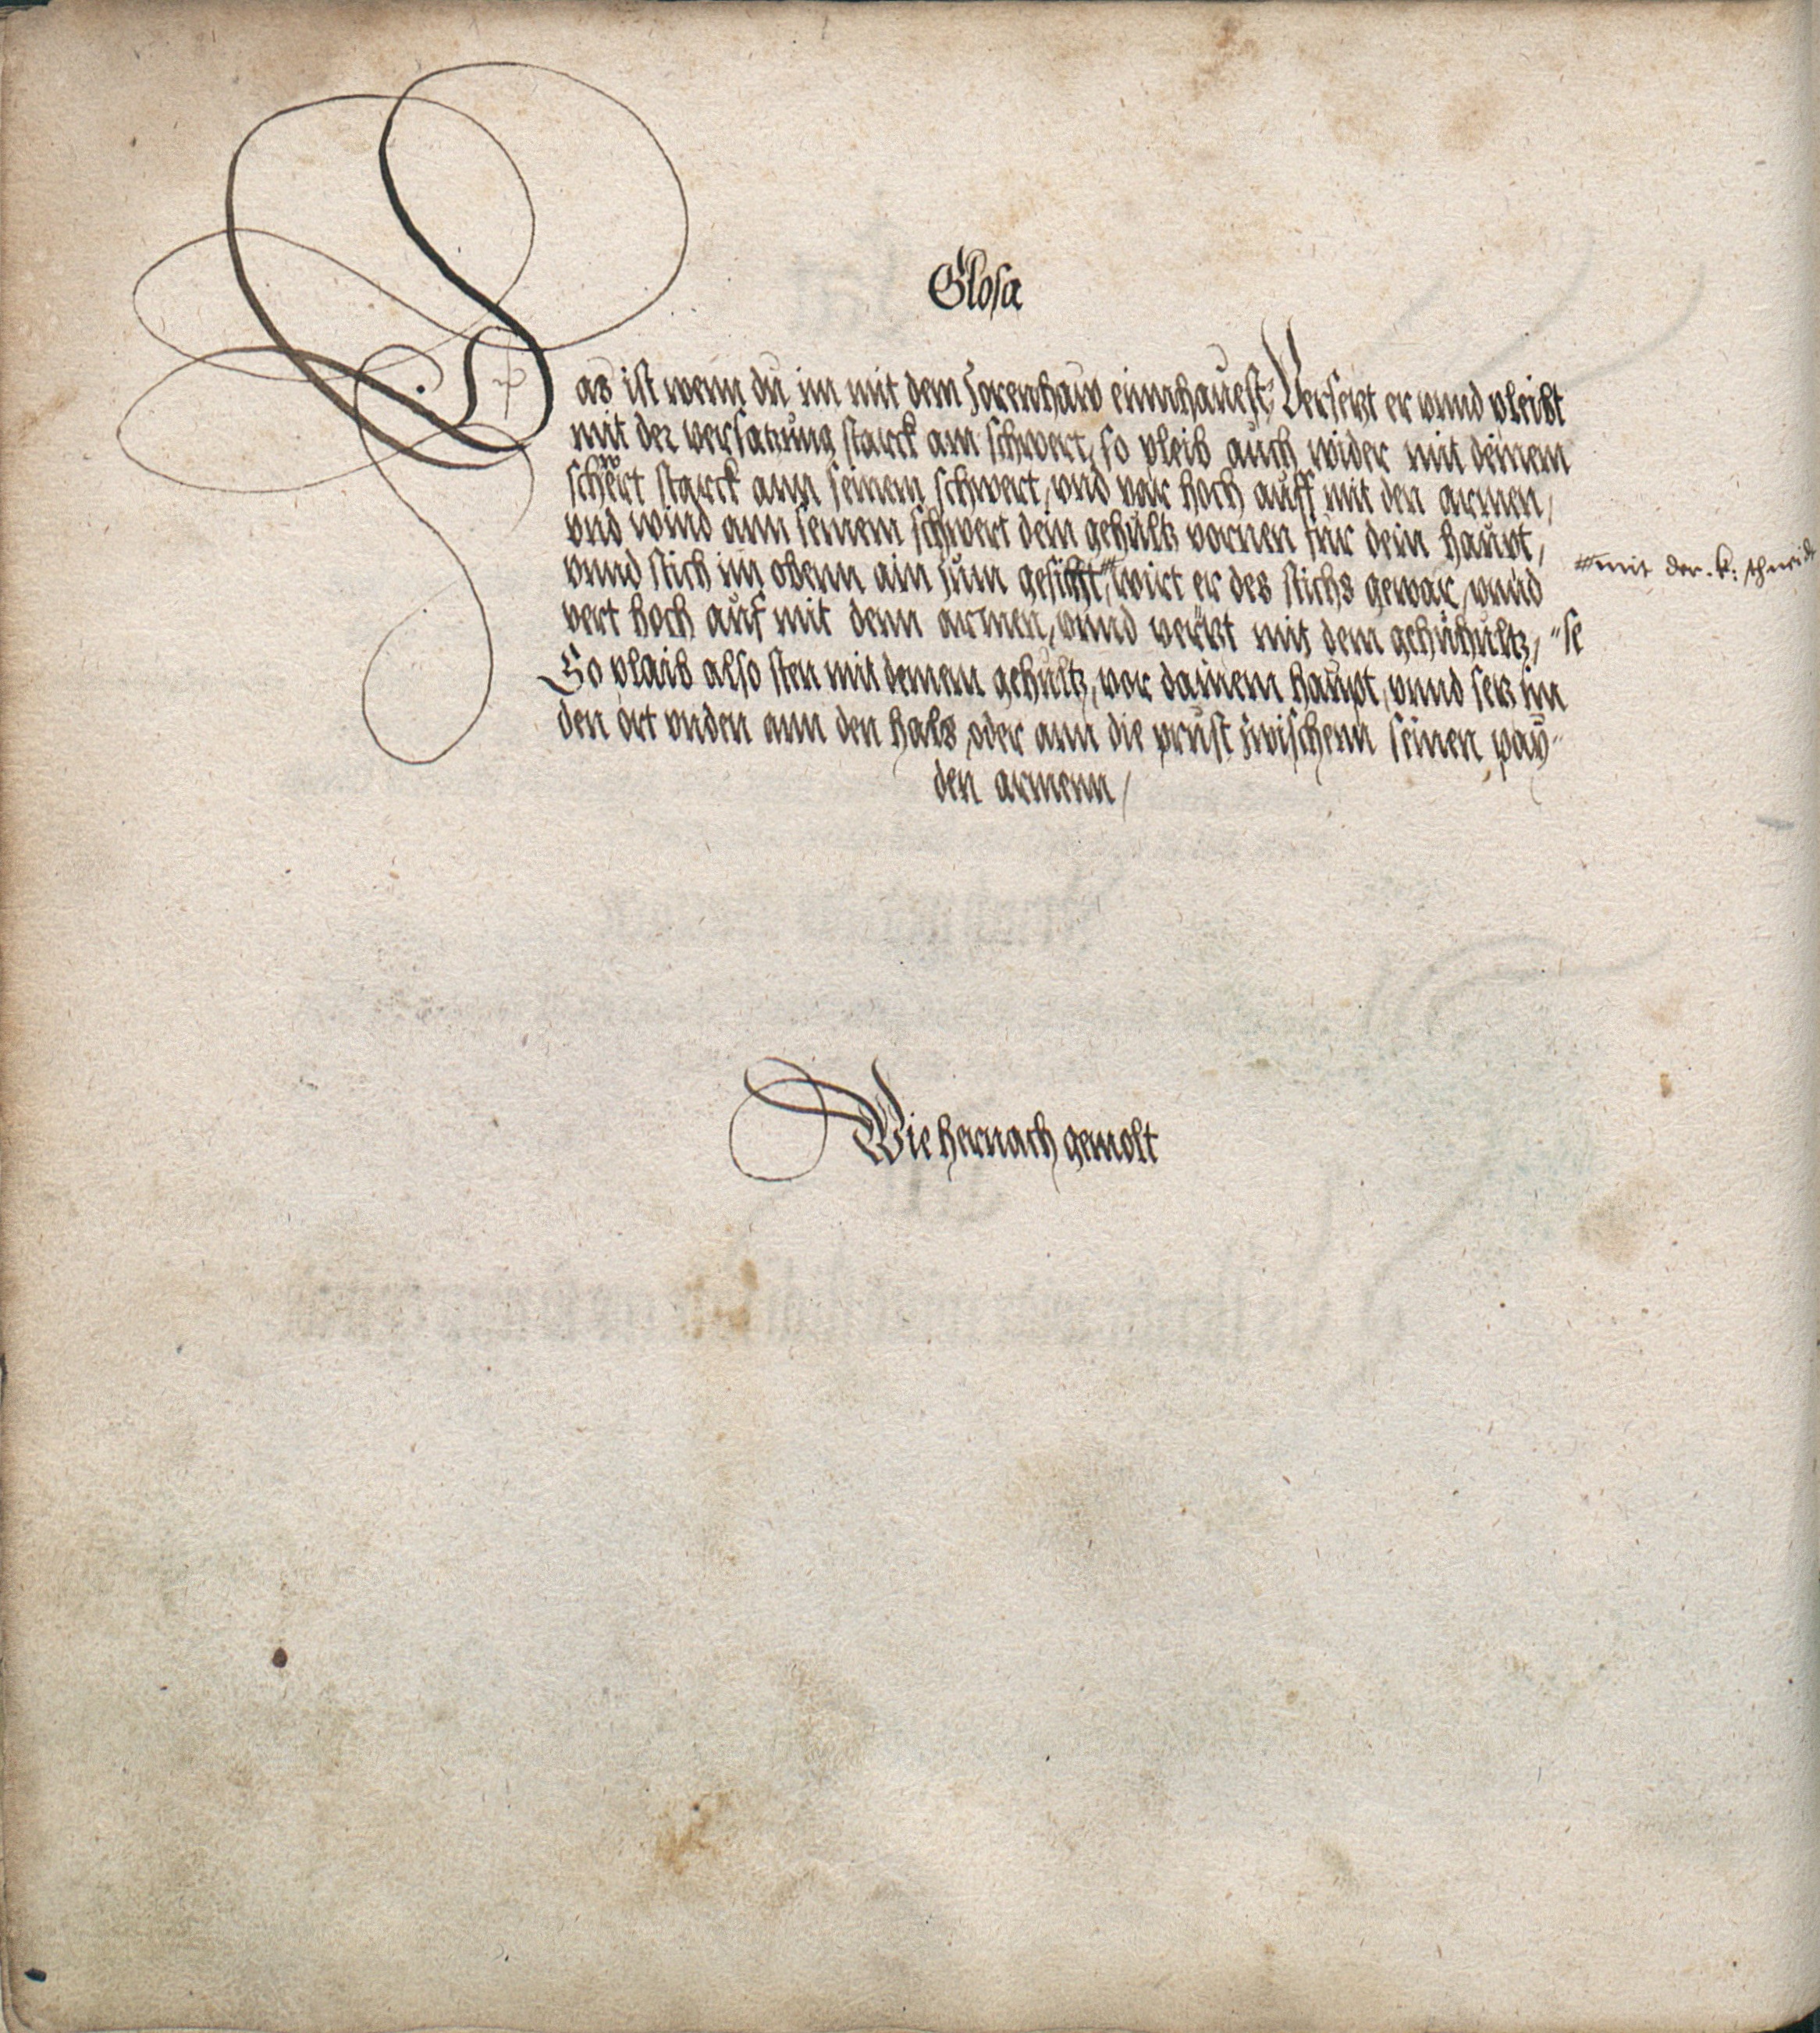 Glosa
Das ist wenn du im mit dem zorenhaw einnhauest, Versetzt er vnnd pleibt
mit der versatzung starck am schwert, so pleib auch wider mit deinem
schwert starck ann seinem schwert, vnd var hoch auff mit den armen,
vnd wind ann seinem schwert dein gehultz vornen für dein haupt,
vnnd stich im obenn ain zum gesicht, wirt er des stichs gewar, vnnd
vert hoch auf mit denn armen, vnnd versetzt mit dem gehultz, se
mit der .k: schneid
So plaib also sten mit deinem gehultz, vor dainem haupt, vnnd setz im
den ort vnden ann den hals, oder ann die prust zwischenn seinen pay-
den armenn,
Wie hernach gemolt